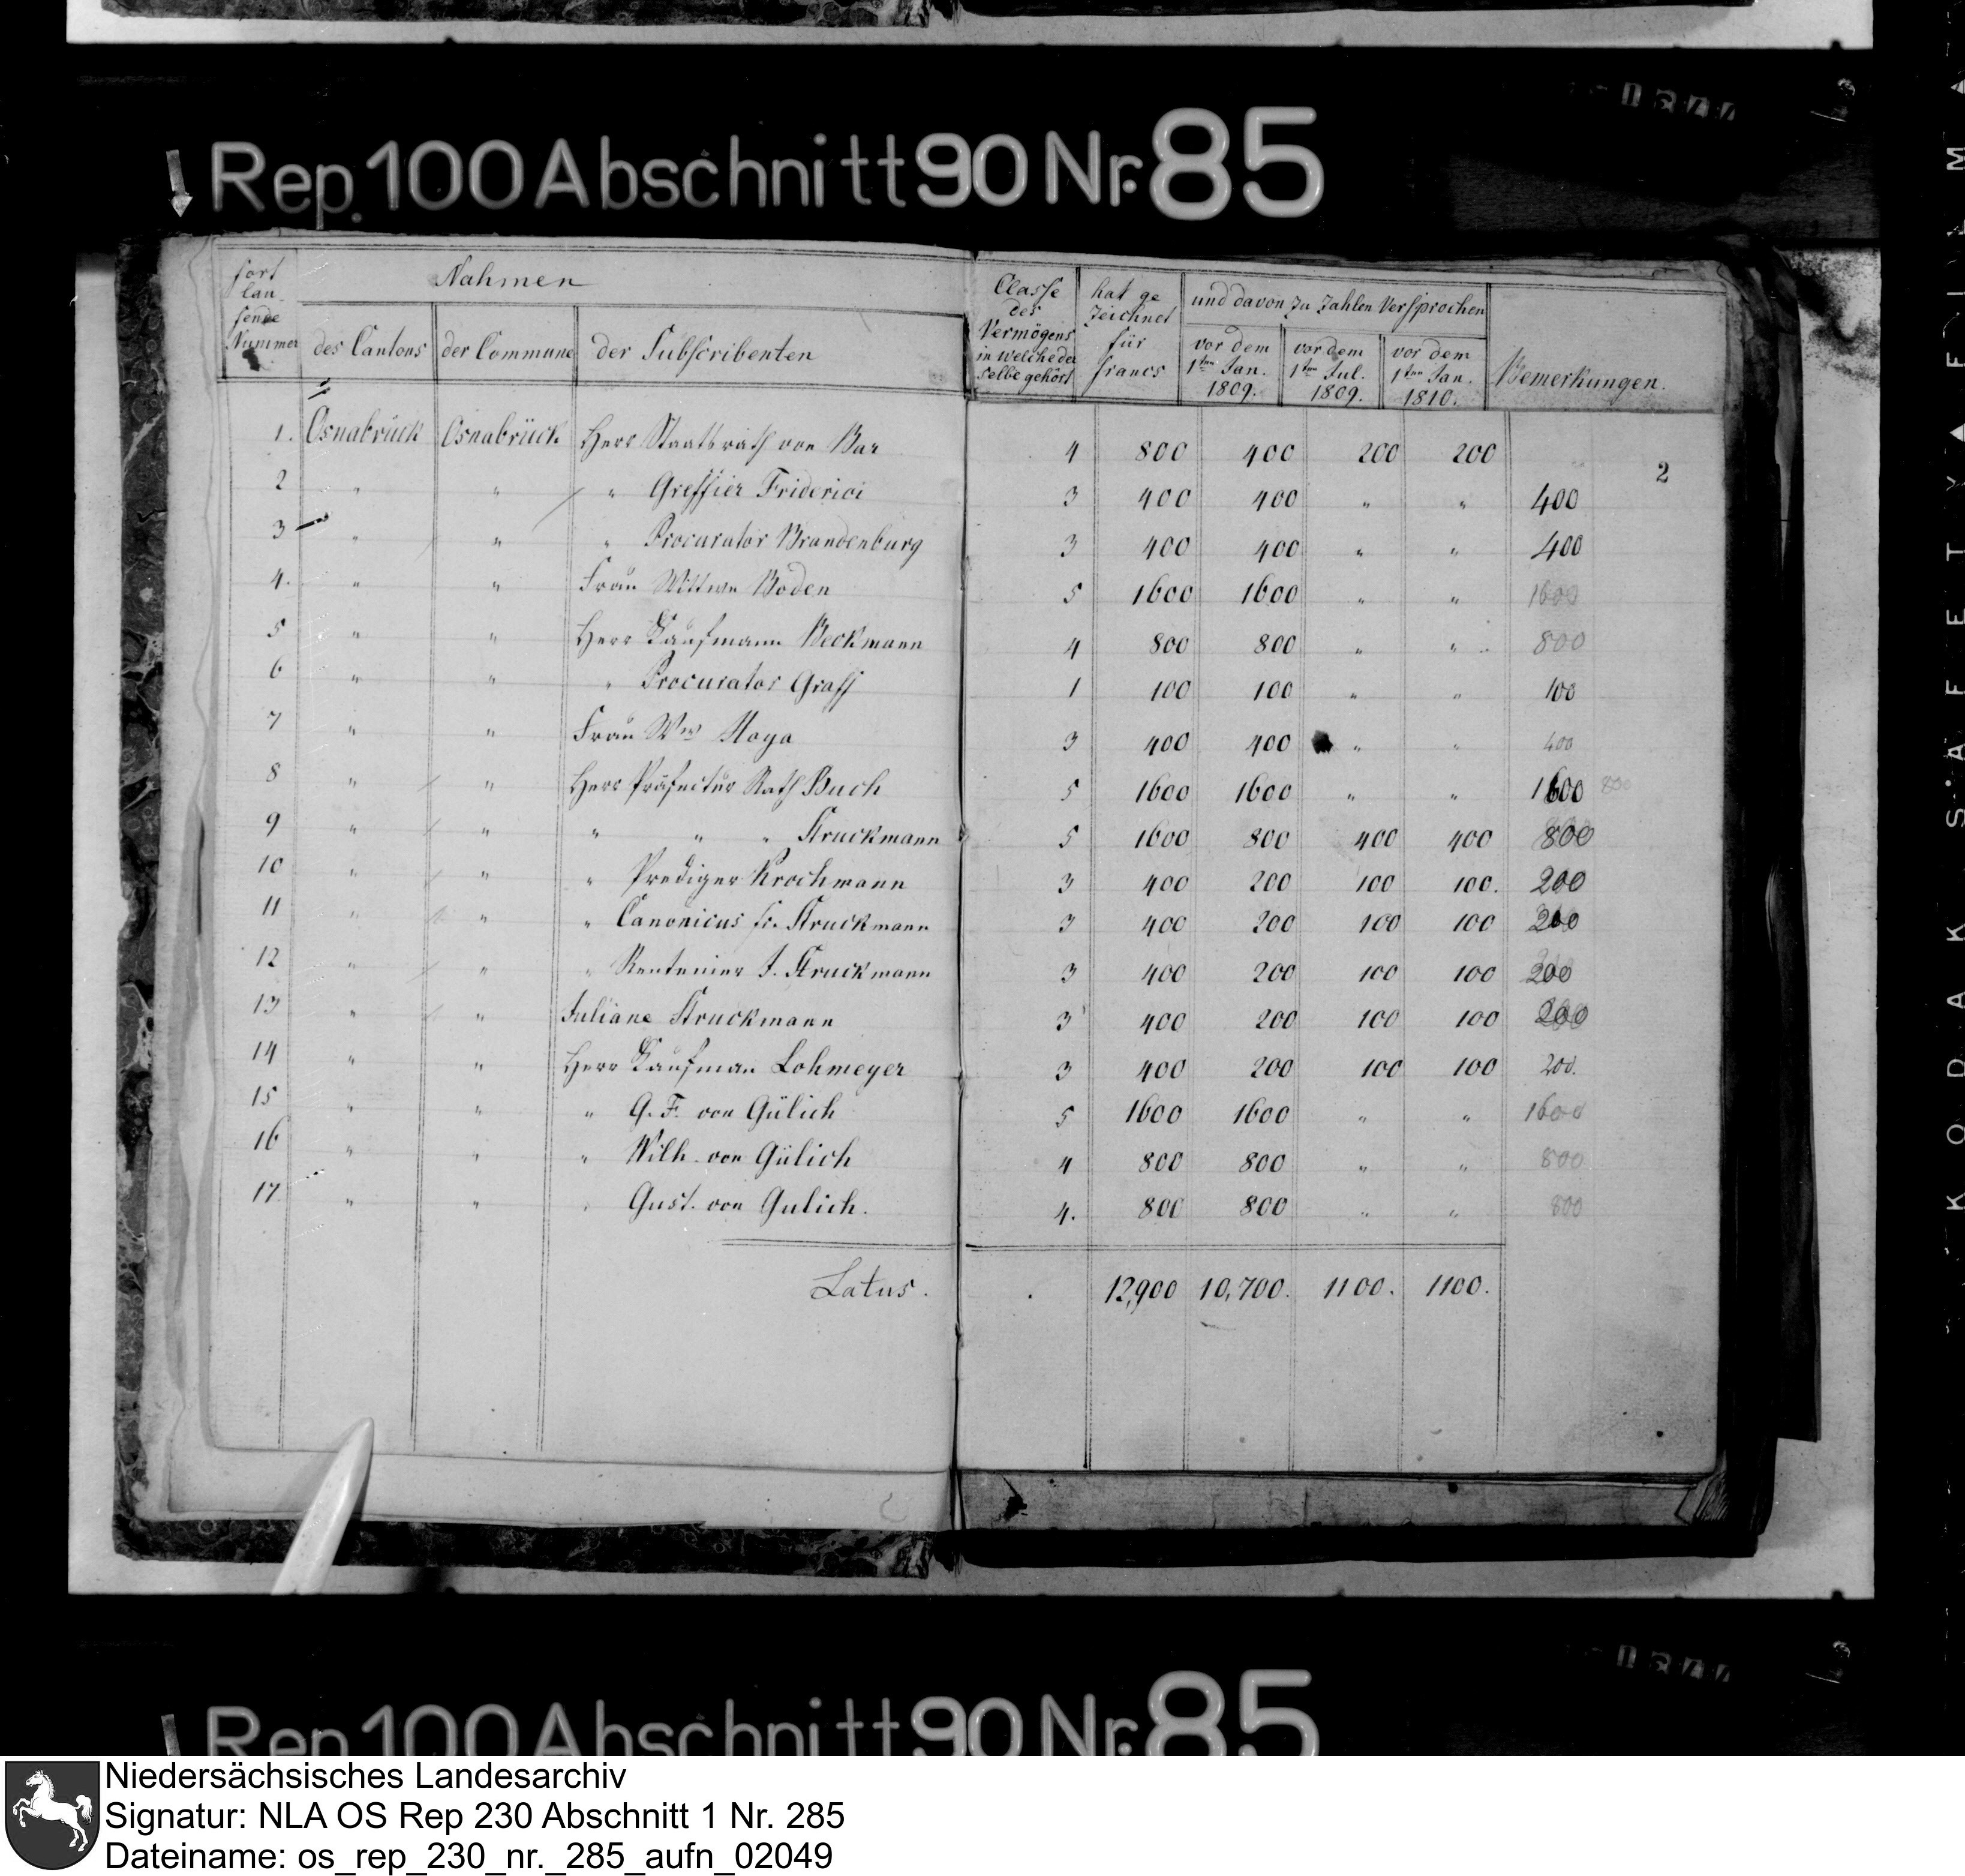 Rep. 100 Abschnitt 90 Nr. 85
fort lau- fende Nummer
Nahmen
des Cantons
der Commune
der Subscribenten
Classe des Vermögens in welche der selbe gehört
hat ge zeichnet für francs
und davon zu zahlen versprochen
vor dem 1ten Jan. 1809.
vor dem 1ten Jul. 1809.
vor dem 1ten Jan. 1810.
Bemerkungen.
2
1. Osnabrück Osnabrück Herr Staatsrath von Bar 4 800 400 200 200
2 " " " Greffier Friderici 3 400 400 " " 400
3 " " " Procurator Brandenburg 3 400 400 " " 400
4. " " Frau Wittwe Boden 5 1600 1600 " " 1600
5 " " Herr Kaufmann Beckmann 4 800 800 " " 800
6 " " " Procurator Graff 1 100 100 " " 100
7 " " Frau Ww Hoya 3 400 400 " " 400
8 " " Herr Präfectur Rath Buch 5 1600 1600 " " 1600 800
9 " " " " " Struckmann 5 1600 800 400 400 800
10 " " " Prediger Krochmann 3 400 200 100 100. 200
11 " " " Canonicus fr. Struckmann 3 400 200 100 100 200
12 " " " Rentenier J. Struckmann 3 400 200 100 100 200
13 " " Juliane Struckmann 3 400 200 100 100 200
14 " " Herr Kaufman Lohmeyer 3 400 200 100 100 200.
15 " " " G. F. von Gülich 5 1600 1600 " " 1600
16 " " " Wilh. von Gülich 4 800 800 " " 800
17 " " " Gust. von Gulich. 4. 800 800 " " 800
Latus. 12,900 10,700. 1100. 1100.
Rep 100 Abschnitt 90 Nr. 85
KODAK SAFETY
Niedersächsisches Landesarchiv
Signatur: NLA OS Rep 230 Abschnitt 1 Nr. 285
Dateiname: os_rep_230_nr._285_aufn_02049